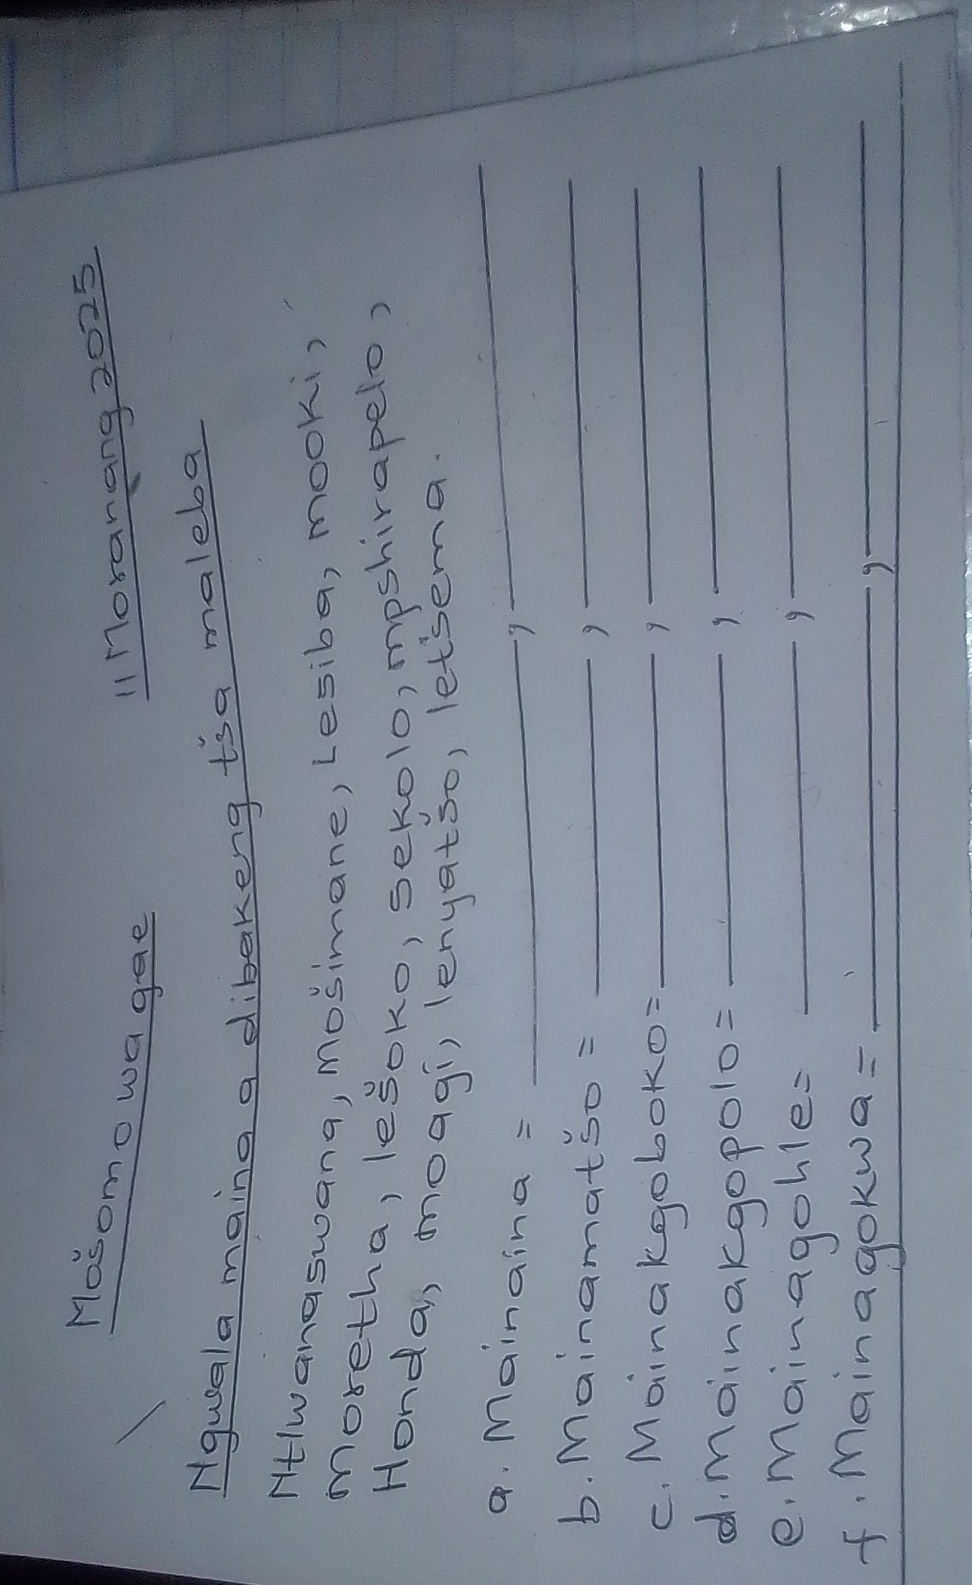 Mošomo wa gae 11 Moranang 2025
Ngwala maina a dibakeng tša maleba
Ntlwanaswana, mošimane, Lesiba, mooki,
moretha, lešoko, sekolo, mpshirapelo,
Honda, moagi, lenyatšo, letšema.
a. Mainaina = ,
b. Mainamatšo = ,
c. Mainakgoboko= ,
d. Mainakgopolo= ,
e. Mainagohle= ,
f. Mainagokwa= ,